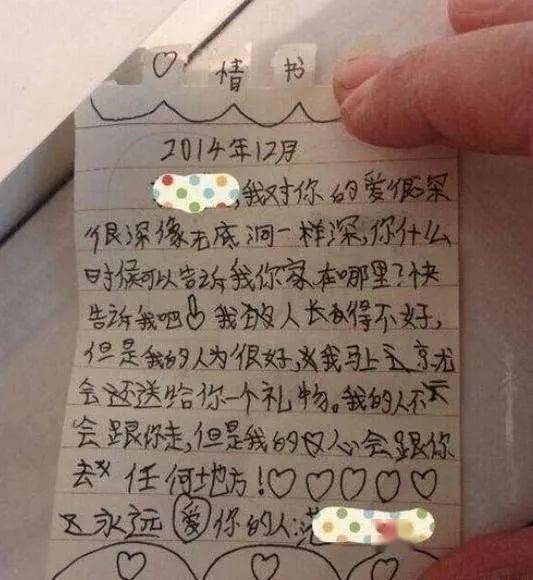 ♡ 情书
2014年12月
,我对你的爱很深
很深像无底洞一样深,你什么
时候可以告诉我你家在哪里?快
告诉我吧 我人长得不好,
但是我的人为很好,我马上
会还送给你一个礼物。我的人不
会跟你走,但是我的心会跟你
去 任何地方!♡♡♡♡♡
永远爱你的人:范